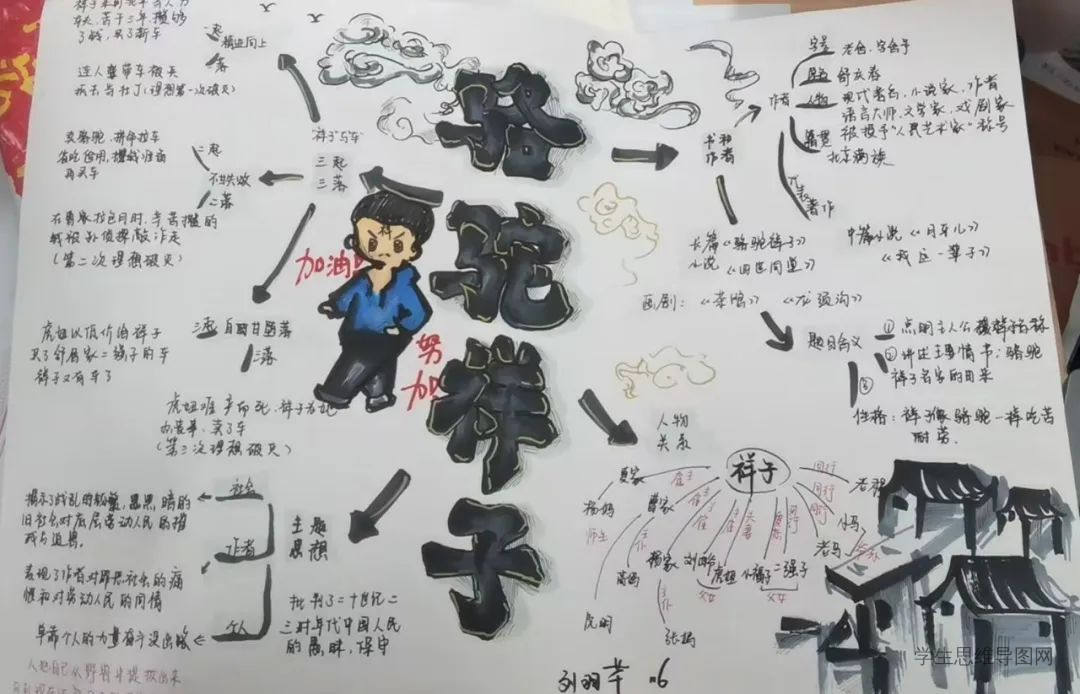 骆驼祥子
祥子与车
三起
三落
一起
积极向上
一落
车夫，苦干三年，攒够
了钱，买了新车
连人带车被
二起
不甘失败
二落
卖骆驼，拼命拉车
省吃俭用，攒钱准备
再买车
在曹家拉包月时，辛苦攒的
钱被孙侦探敲诈走
（第二次理想破灭）
三起
自甘堕落
三落
虎妞以低价给祥子
买了邻居家二强子的车
祥子又有车了
虎妞难产而死，祥子为她
办丧事，卖了车
（第三次理想破灭）
加油
努
加
书和
作者
作者
字号
老舍，字舍予
原名
舒庆春
人物
现代著名，小说家，作者
语言大师，文学家，戏剧家
被授予“人民艺术家”称号
籍贯
北京满族
代表
著作
长篇《骆驼祥子》
小说《四世同堂》
中篇小说《月牙儿》
《我这一辈子》
画剧：《茶馆》《龙须沟》
题目含义
①点明主人公
②讲述主要情节：骆驼
祥子名字的由来
③
性格：祥子像骆驼一样吃苦
耐劳.
人物
关系
祥子
夏家
杨妈
师生
曹家
高妈
杨家
张妈
刘四爷
虎妞
小福子
二强子
父女
父女
老马
小马
同行
主题
思想
社会
旧社会对底层劳动人民的
作者
表现了作者对罪恶社会的痛
恨和对劳动人民的同情
个人
单靠个人的力量奋斗没出路
批判了二十世纪二
三时年代中国人民
的愚昧，保守
刘羽芊
学生思维导图网